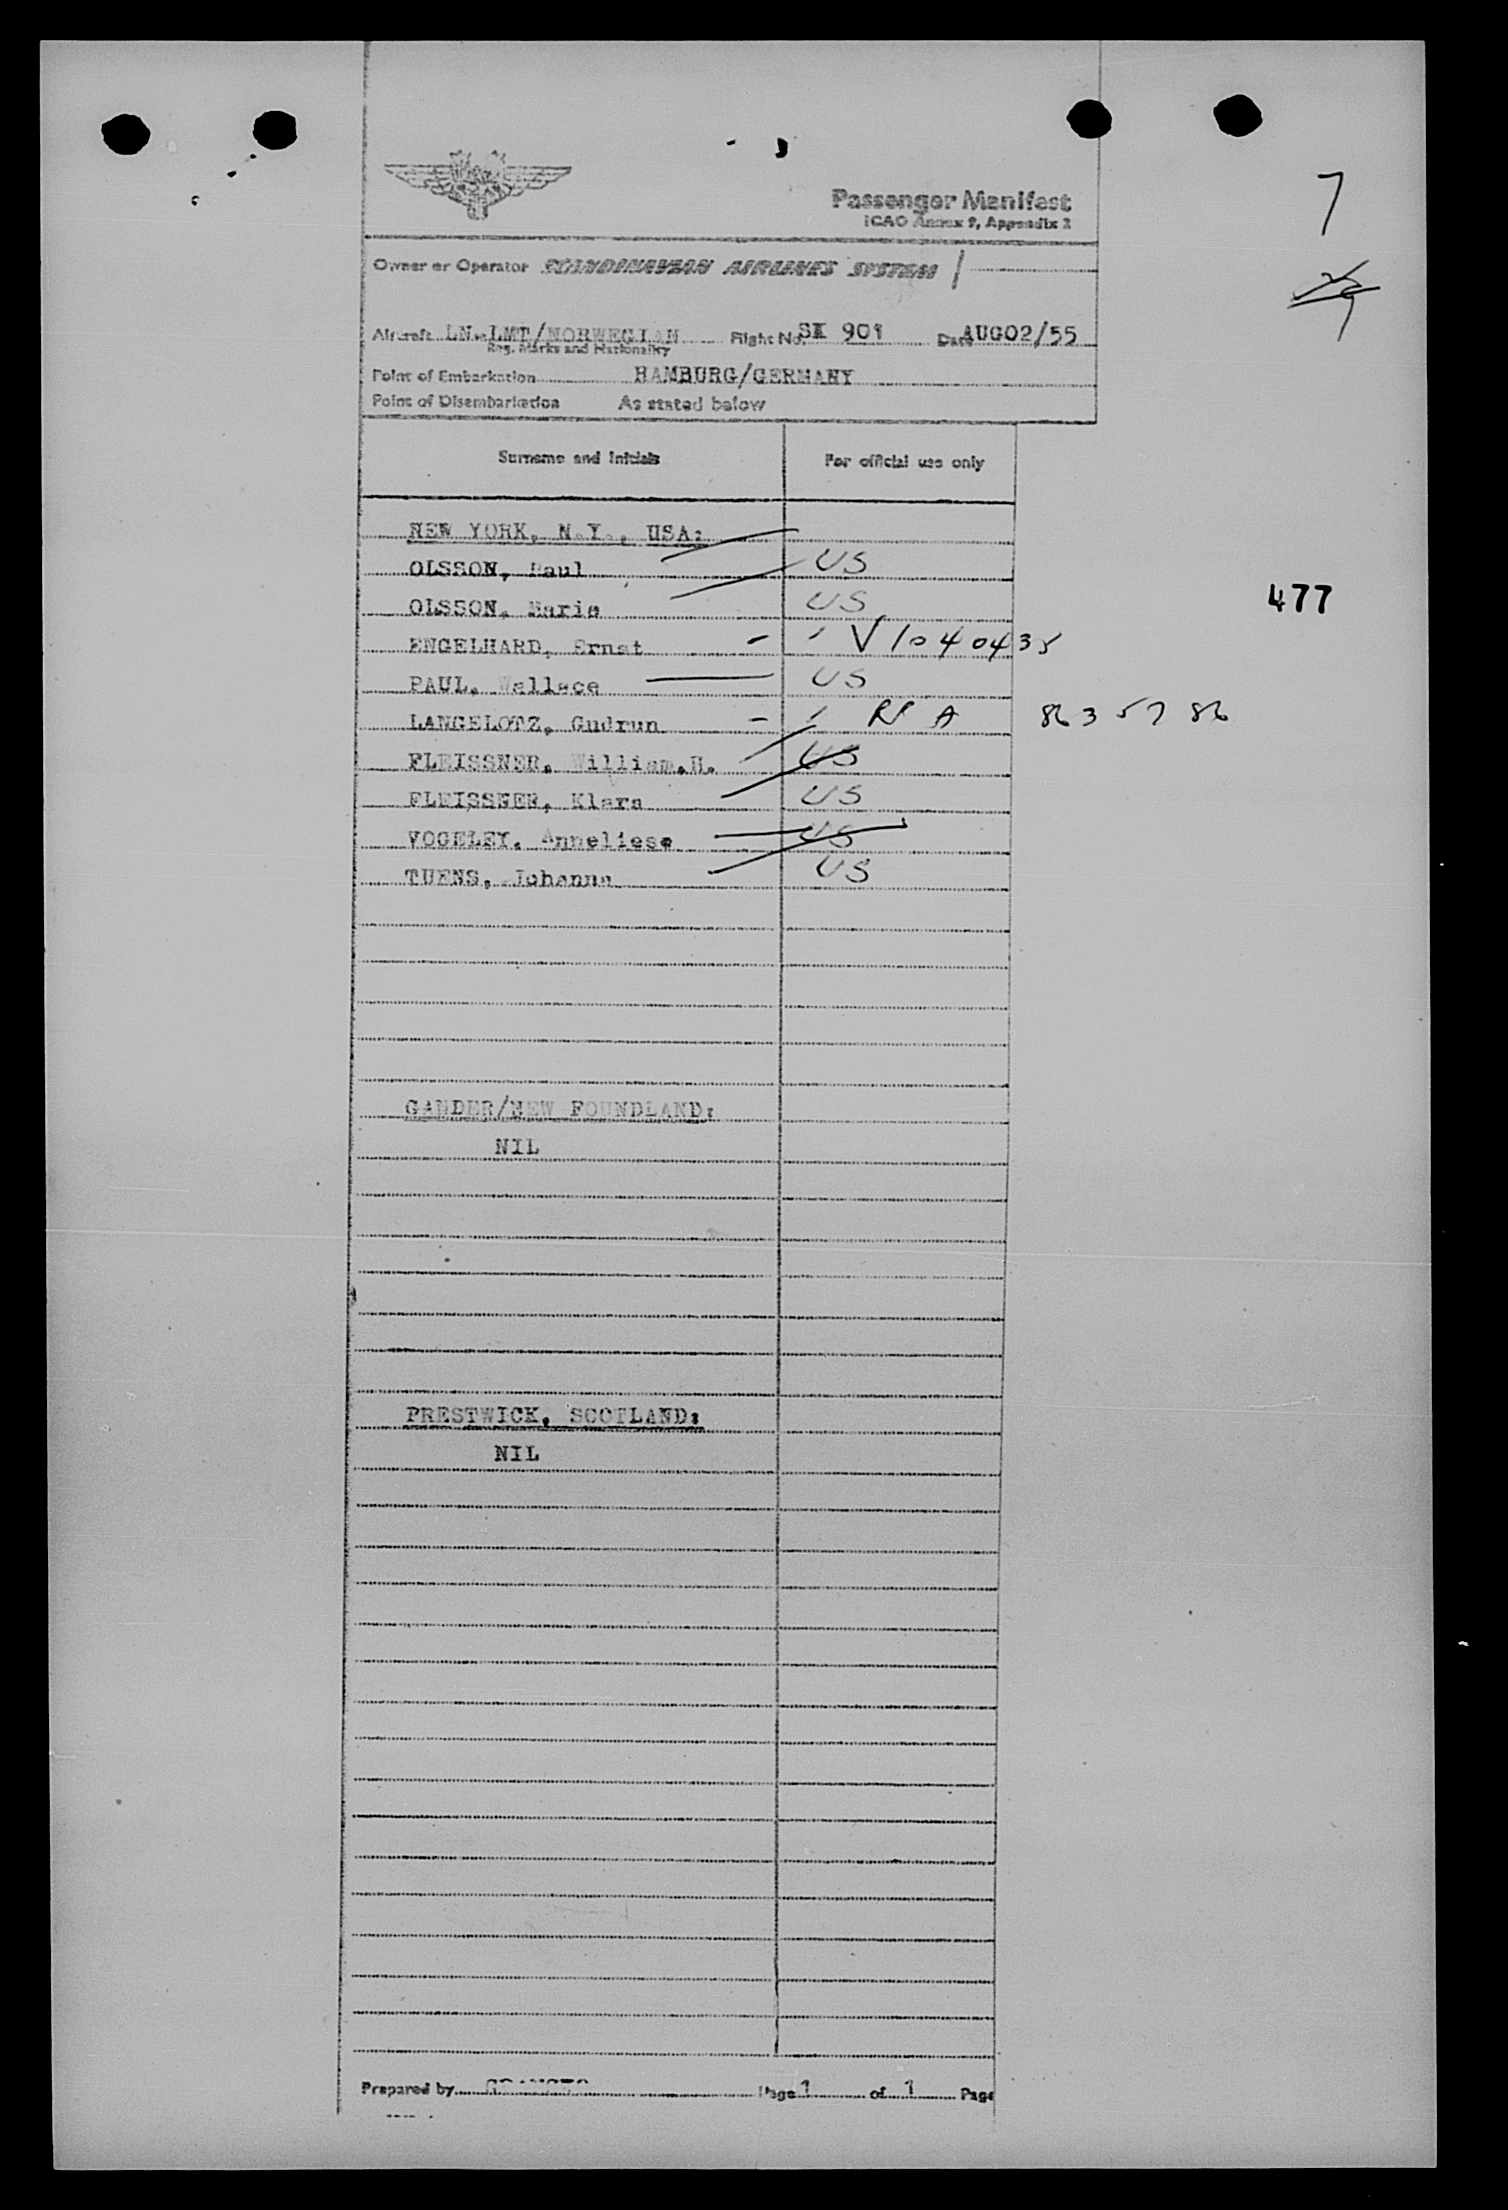 7
Passenger Manifest
ICAO Annex 9, Appendix 2
Owner or Operator SCANDINAVIAN AIRLINES SYSTEM
Aircraft LN-LMT/NORWEGIAN Flight No. SK 901 Date AUG02/55
Reg. Marks and Nationality
Point of Embarkation HAMBURG/GERMANY
Point of Disembarkation As stated below
Surname and Initials For official use only
NEW YORK, N.Y., USA:
OLSSON, Paul US
OLSSON, Marie US
477
ENGELHARD, Ernst V1040435
PAUL, Wallace US
LANGELOTZ, Gudrun A 8635786
FLEISSNER, William.H. US
FLEISSNER, Klara US
VOGELEY, Anneliese US
TUENS, Johanna US
GANDER/NEW FOUNDLAND:
NIL
PRESTWICK, SCOTLAND:
NIL
Prepared by Page 1 of 1 Page